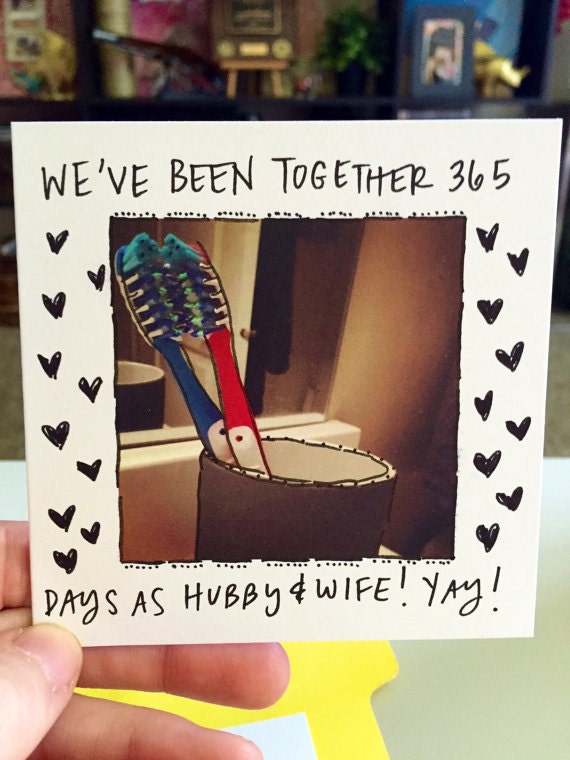 WE'VE BEEN TOGETHER 365
DAYS AS HUBBY & WIFE! YAY!